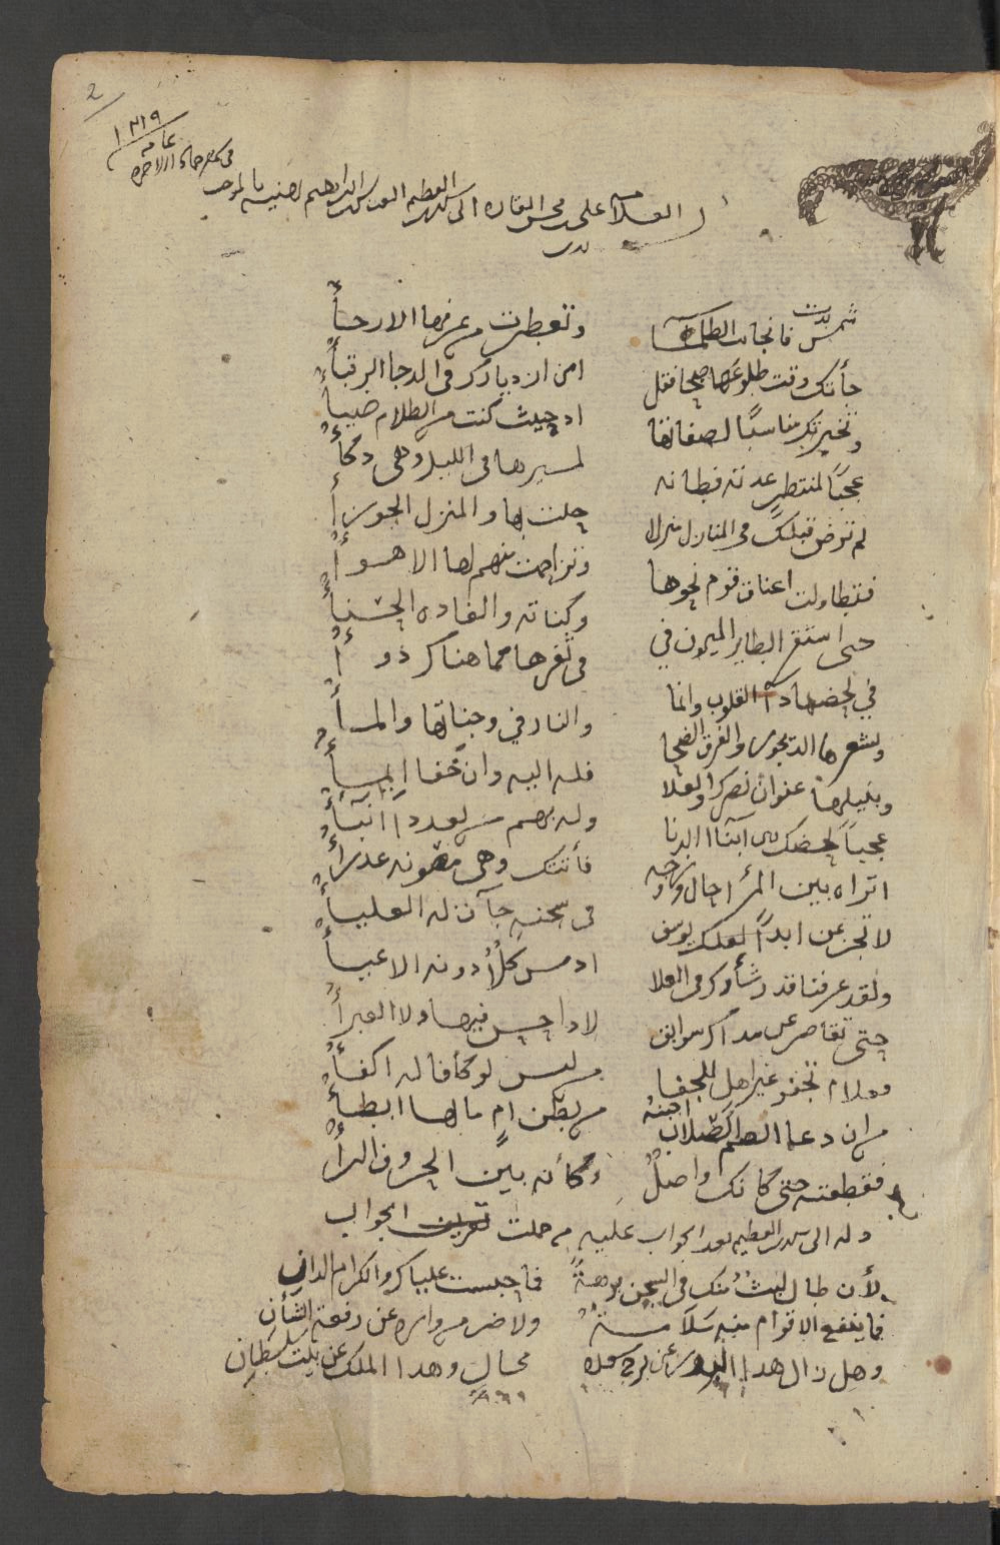 2
١٢١٩
عام
في شهر جماد الاخره
العلا على محسن القاره الى سيدي العظيم ابراهيم لصنيه بالموجب
شمس بدت فانجابت الظلمآ وتعطرت من عرفها الارجأ
جأتك وقت طلوعها صبحا فقل امن ازديارك في الدجا الرقبأ
وتخيرتك مناسبًا لصفاتها اذ حيث كنت من الظلام ضيأ
عجبًا لمنتظر عدته فطانه لمسيرها في الليل وهي ذكأ
لم ترض قبلك في المنازل منزلا حلت بها والمنزل الجوزأ
فتطاولت اعناق قوم نحوها وتزاحمت منهم لها الاهوأ
حتى استقر الطاير الميمون في وكناته والغاده الحسنأ
في لحضها دآ القلوب وانما في ثغرها مما هناك دوأ
ولشعرها الديجور والفرق الضحا والنار في وجناتها والمأ
وبليلها عنوان نصرك والعلا فله اليه وان خفا ايمأ
عجبًا لحضك من ابنآ الدنا وله بهم تعدد انبأ
اتراه بين المرأ حال وزوجه فأتتك وهي مصونه عذرأ
لا تجزعن ابدًا لعلك يوسف في سجنه جآت له العليأ
ولقد عرفنا قدر شأوك في العلا اذ مس كلاً دونه الاعيأ
حتى تقاصر عن مداك سوابق لا داحس فيها ولا الغبرأ
فعلام تجفو غير اهل للجفا من ليس لو كأفا له اكفأ
من ان دعا الصم الصلاب اجبنه من بطن ام مالها ابطأ
فقطعته حتى كانك واصلٌ وكأنه بين الحروف الرأ
وله الى سيدي العظيم بعد الجواب عليه من حملت تعريف الجواب
لأن طال لبثٌ منك في السجن برهةً فما حبست علياك والكرام الداني
فما ينفع الاقوام منه سلامةٌ ولا ضر من واره عن رفعة الشأن
وهل زال هذا البدر عن برج سعده محال وهذا الملك عن بيت سلطان